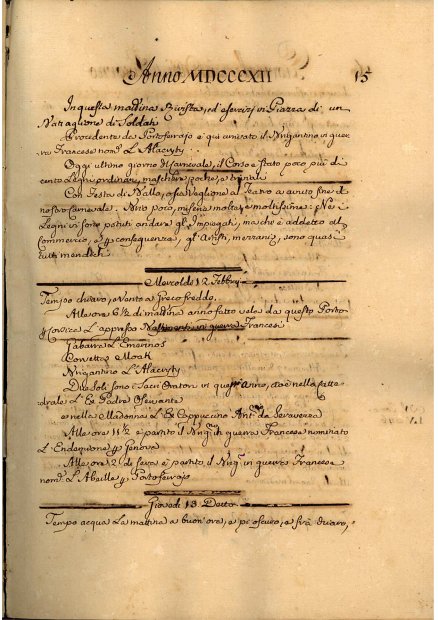 Anno MDCCCXII 15
In questa mattina Rivista, ed esercizi in Piazza di un
Battaglione di Soldati
Procidente da Portoferrajo è qui arrivato il Brigantino in guer
ra Francese nom.º L'Alacryty
Oggi ultimo giorno di Carnevale, il Corso è stato poco più di
cento Legni ordinari, maschere poche, e triviali
Con Festa di Ballo, ossia Veglione al Teatro a avuto fine il
nostro Carnevale. Brio poco, miseria molta, e moltissima: Nei
Legni vi sono potuti andare gl'Impiegati, ma chi è addetto al
Commercio, e p conseguenza, gl'Artisti, merzani, sono quasi
tutti mendichi
Mercoldì 12 Febbrº
Tempo chiaro, vento a Greco freddo.
Alle ore 6½ di mattina anno fatto vela da questo Porto
p Corsica L'appresso Bastimenti in guerra Francesi
Gabarra L'Emorinos
Corvetta Moak
Brigantino L'Alacryty
Due Soli sono i Sacri Oratori in quest'anno, cioè nella Catte
drale L'Ex Padre Oservante
e nella Madonna L'Ex Cappuccino Antº da Seravezza
Alle ore 11½ è partito il Brigº in guerra Francese nominato
L'Endemione p Genova
Alle ore 2 di sera è partito il Brigº in guerra Francese
nomº L'Abeille p Portoferrajo
Giovedì 13 Detto
Tempo acqua La mattina a buon'ora, e pi oscuro, e sirà chiaro,